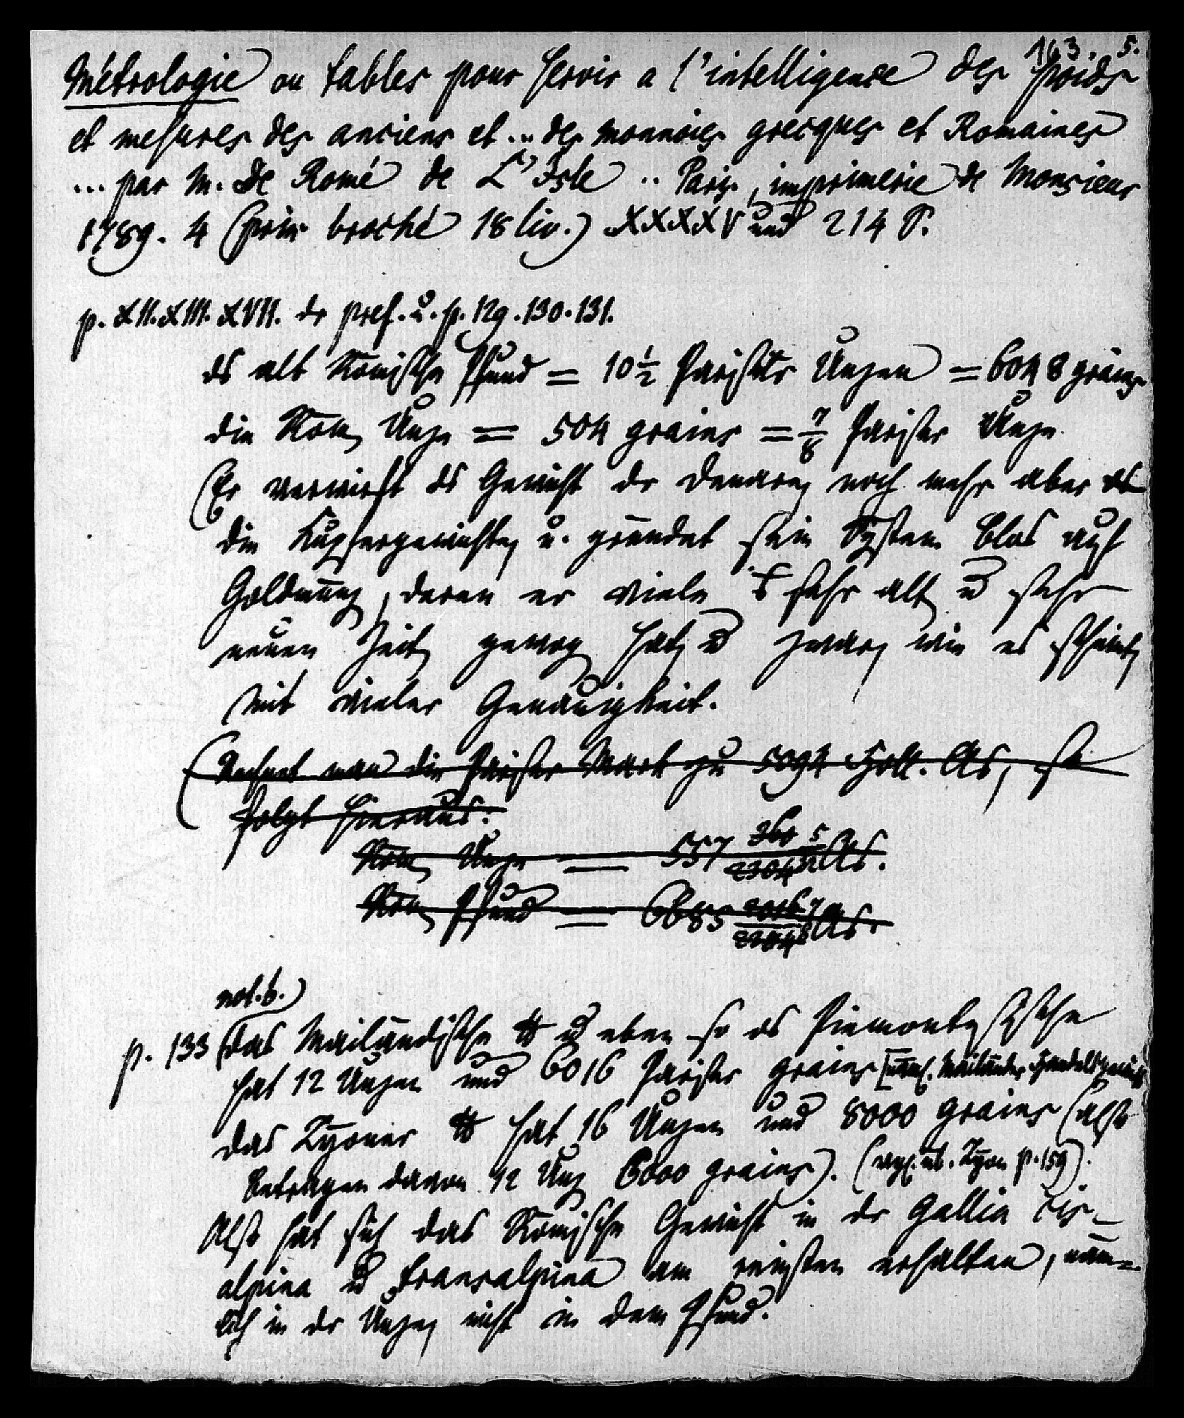 143. 5.
Métrologie ou tables pour servir a l'intelligence des poids
et mesures des anciens et .. des monnoies grecques et Romaines
... par M. De Romé de L'Isle .. Paris, imprimerie de Monsieur
1789. 4 (prix broché 18 liv.) XXXXV und 214 S.
p. XII. XIII. XVII. der pref. u. p. 129. 130. 131.
ds alt Römische Pfund = 10 1/2 Pariser Unzen = 6048 grains
die Röm Unze = 504 grains = 7/8 Pariser Unze.
(Er verwirft ds Gewicht der Denare noch mehr aber
die Kupfergewichte u. gründet sein System blos auf
Goldmünz, deren er viele sehr alt u sehr
neuen Zeit gewog hat, u zwar wie es scheint
mit vieler Genauigkeit.
(Rechnet man die Pariser Mark zu 5094 Holl. As, so
folgt hieraus:
Röm Unze = 557 360/2304 5/32 As.
Röm Pfund = 6685 2016/2304 7/8 As.
not. b.)
p. 133 (das Mailändische ℔ u eben so ds Piemontesische
hat 12 Unzen und 6016 Pariser grains [näml. Mailänder Handelsgewicht
das Lyoner ℔ hat 16 Unzen und 8000 grains (also
betragen davon 12 Unz 6000 grains). (vgl. ub. Lyon p. 159).
Also hat sich das Römische Gewicht in der Gallia cis-
alpina u transalpina am reinsten erhalten, näm-
lich in der Unze, nicht in dem Pfund.